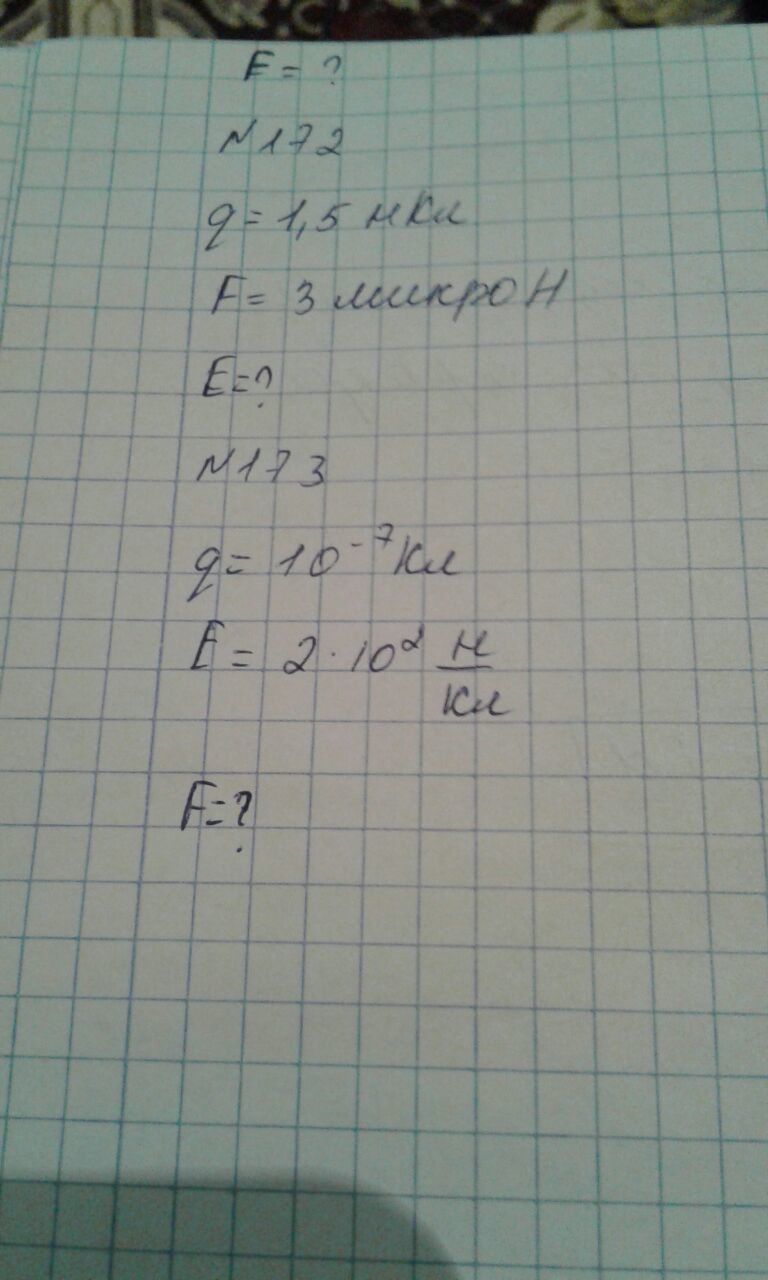 F = ?
N172
q = 1,5 нКл
F = 3 микроН
E = ?
N173
q = 10⁻⁷ Кл
E = 2 · 10² Н/Кл
F = ?